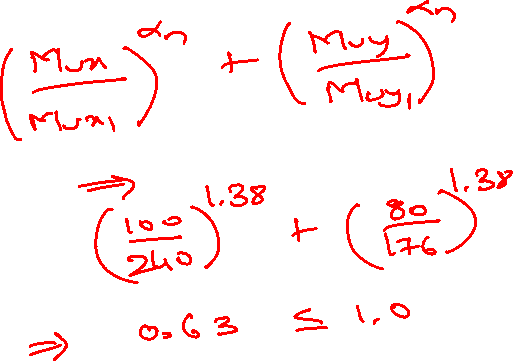 (Mux/Mux₁)^αn + (Muy/Muy₁)^αn
⇒ (100/240)^1.38 + (80/176)^1.38
⇒ 0.63 ≤ 1.0